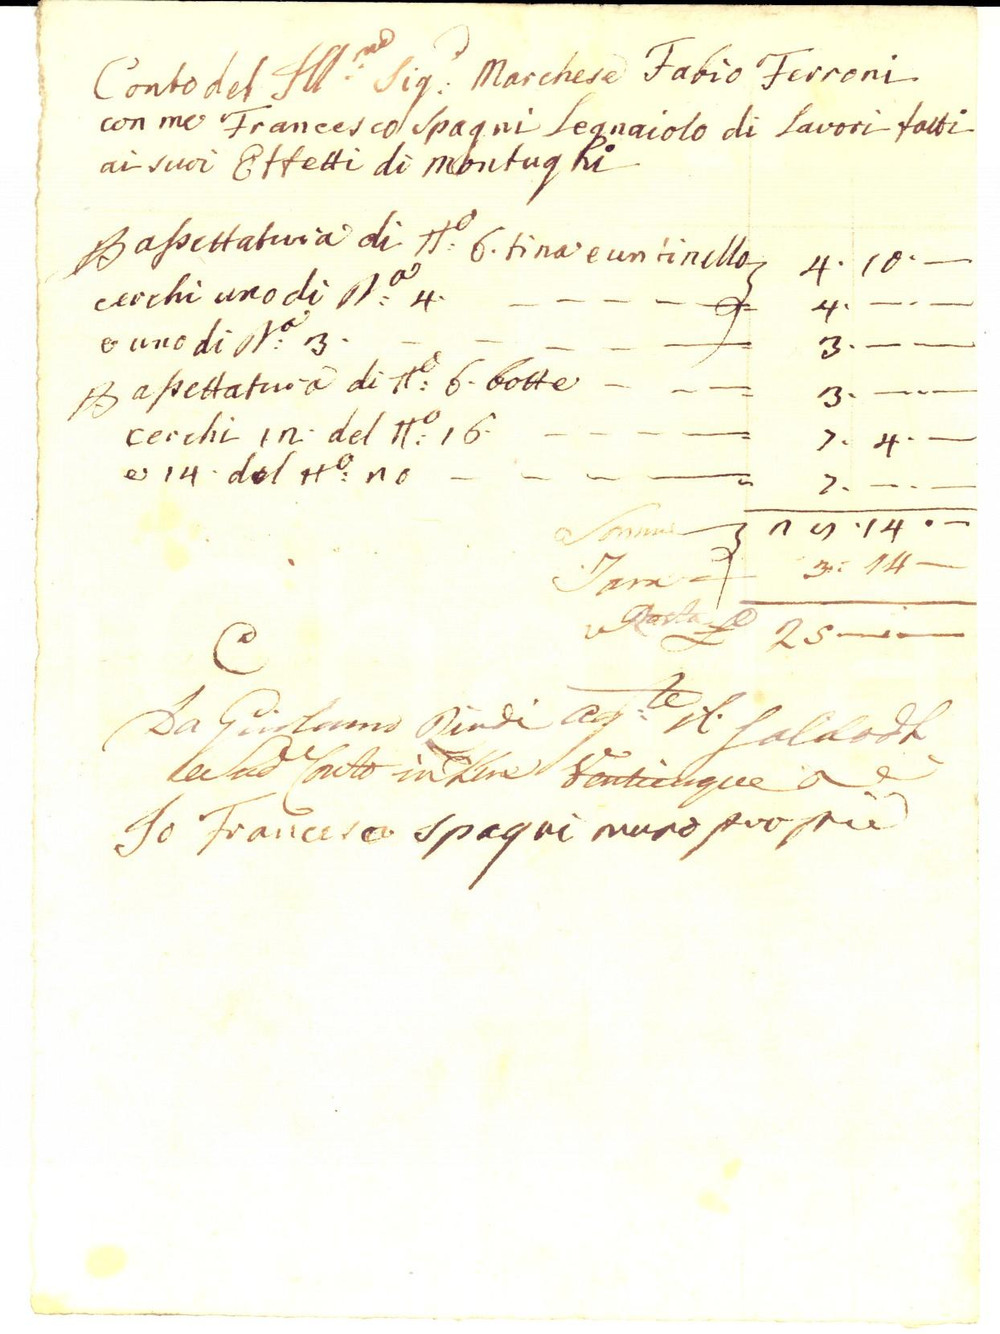 Conto del Ill.mo Sig.r Marchese Fabio Ferroni
con me Francesco Spagni Legnaiolo di Lavori fatti
ai suoi Effetti di Montughi
P assettatura di N.o 6. tina e un tinello 4. 10. —
cerchi uno di N.o 4. — — — 4. — . —
e uno di N.o 3. — — — 3. — — —
P assettatura di N.o 6. botte — — 3. — . —
cerchi 12. del N.o 16 — — — 7. 4. —
e 14. del N.o 20 — — — 7. — . —
Somma 28. 14. —
Tara 3: 14 —
Resta £ 25 — . —
Da Girolamo Ag.te il Saldo del
Conto in Lire Venticinque
Io Francesco Spagni mano propria